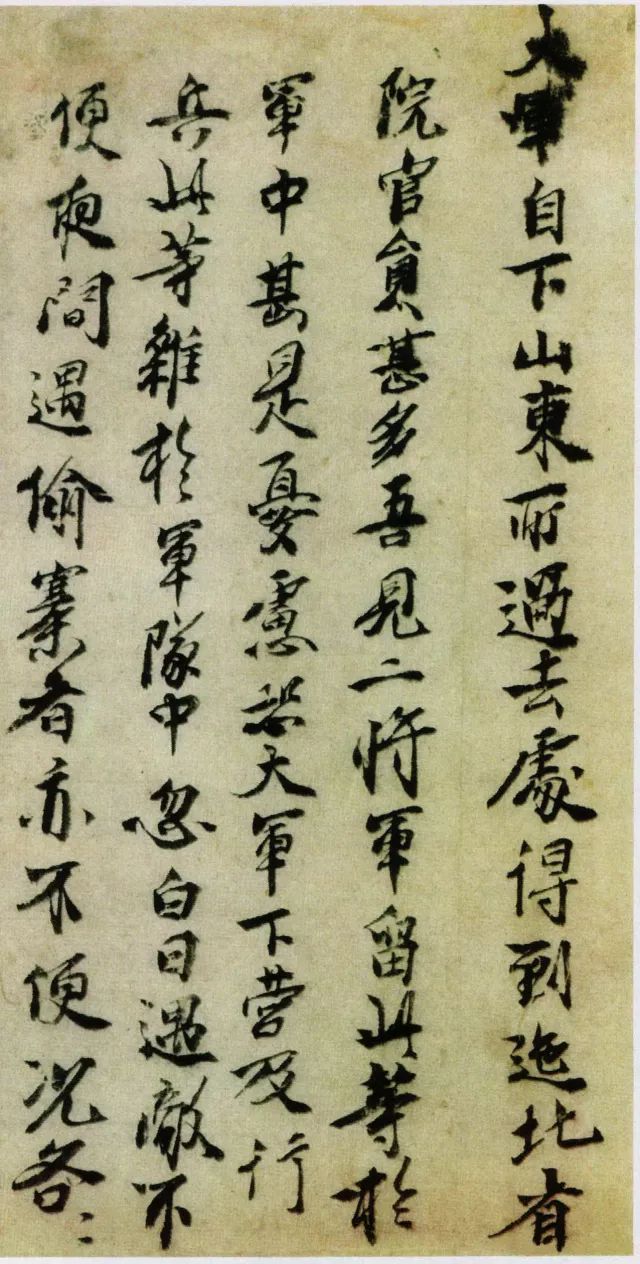 大軍自下山東所過去處得到迤北省
院官員甚多吾見二將軍留此等於
軍中甚是憂慮恐大軍下營及行
兵此等雜於軍隊中忽白日遇敵不
便夜間遇偷寨者亦不便况各〻